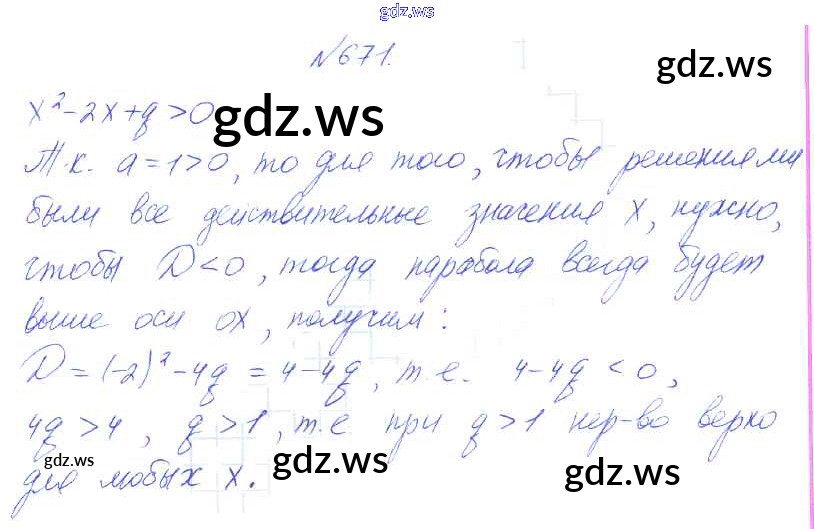 gdz.ws
№671.
gdz.ws
x²-2x+q>0
gdz.ws
Т.к. a=1>0, то для того, чтобы решениями
были все действительные значения x, нужно,
чтобы D<0, тогда парабола всегда будет
выше оси ox, получим:
D=(-2)²-4q=4-4q, т.е. 4-4q<0,
4q>4, q>1, т.е. при q>1 нер-во верно
gdz.ws
gdz.ws
gdz.ws
для любых x.